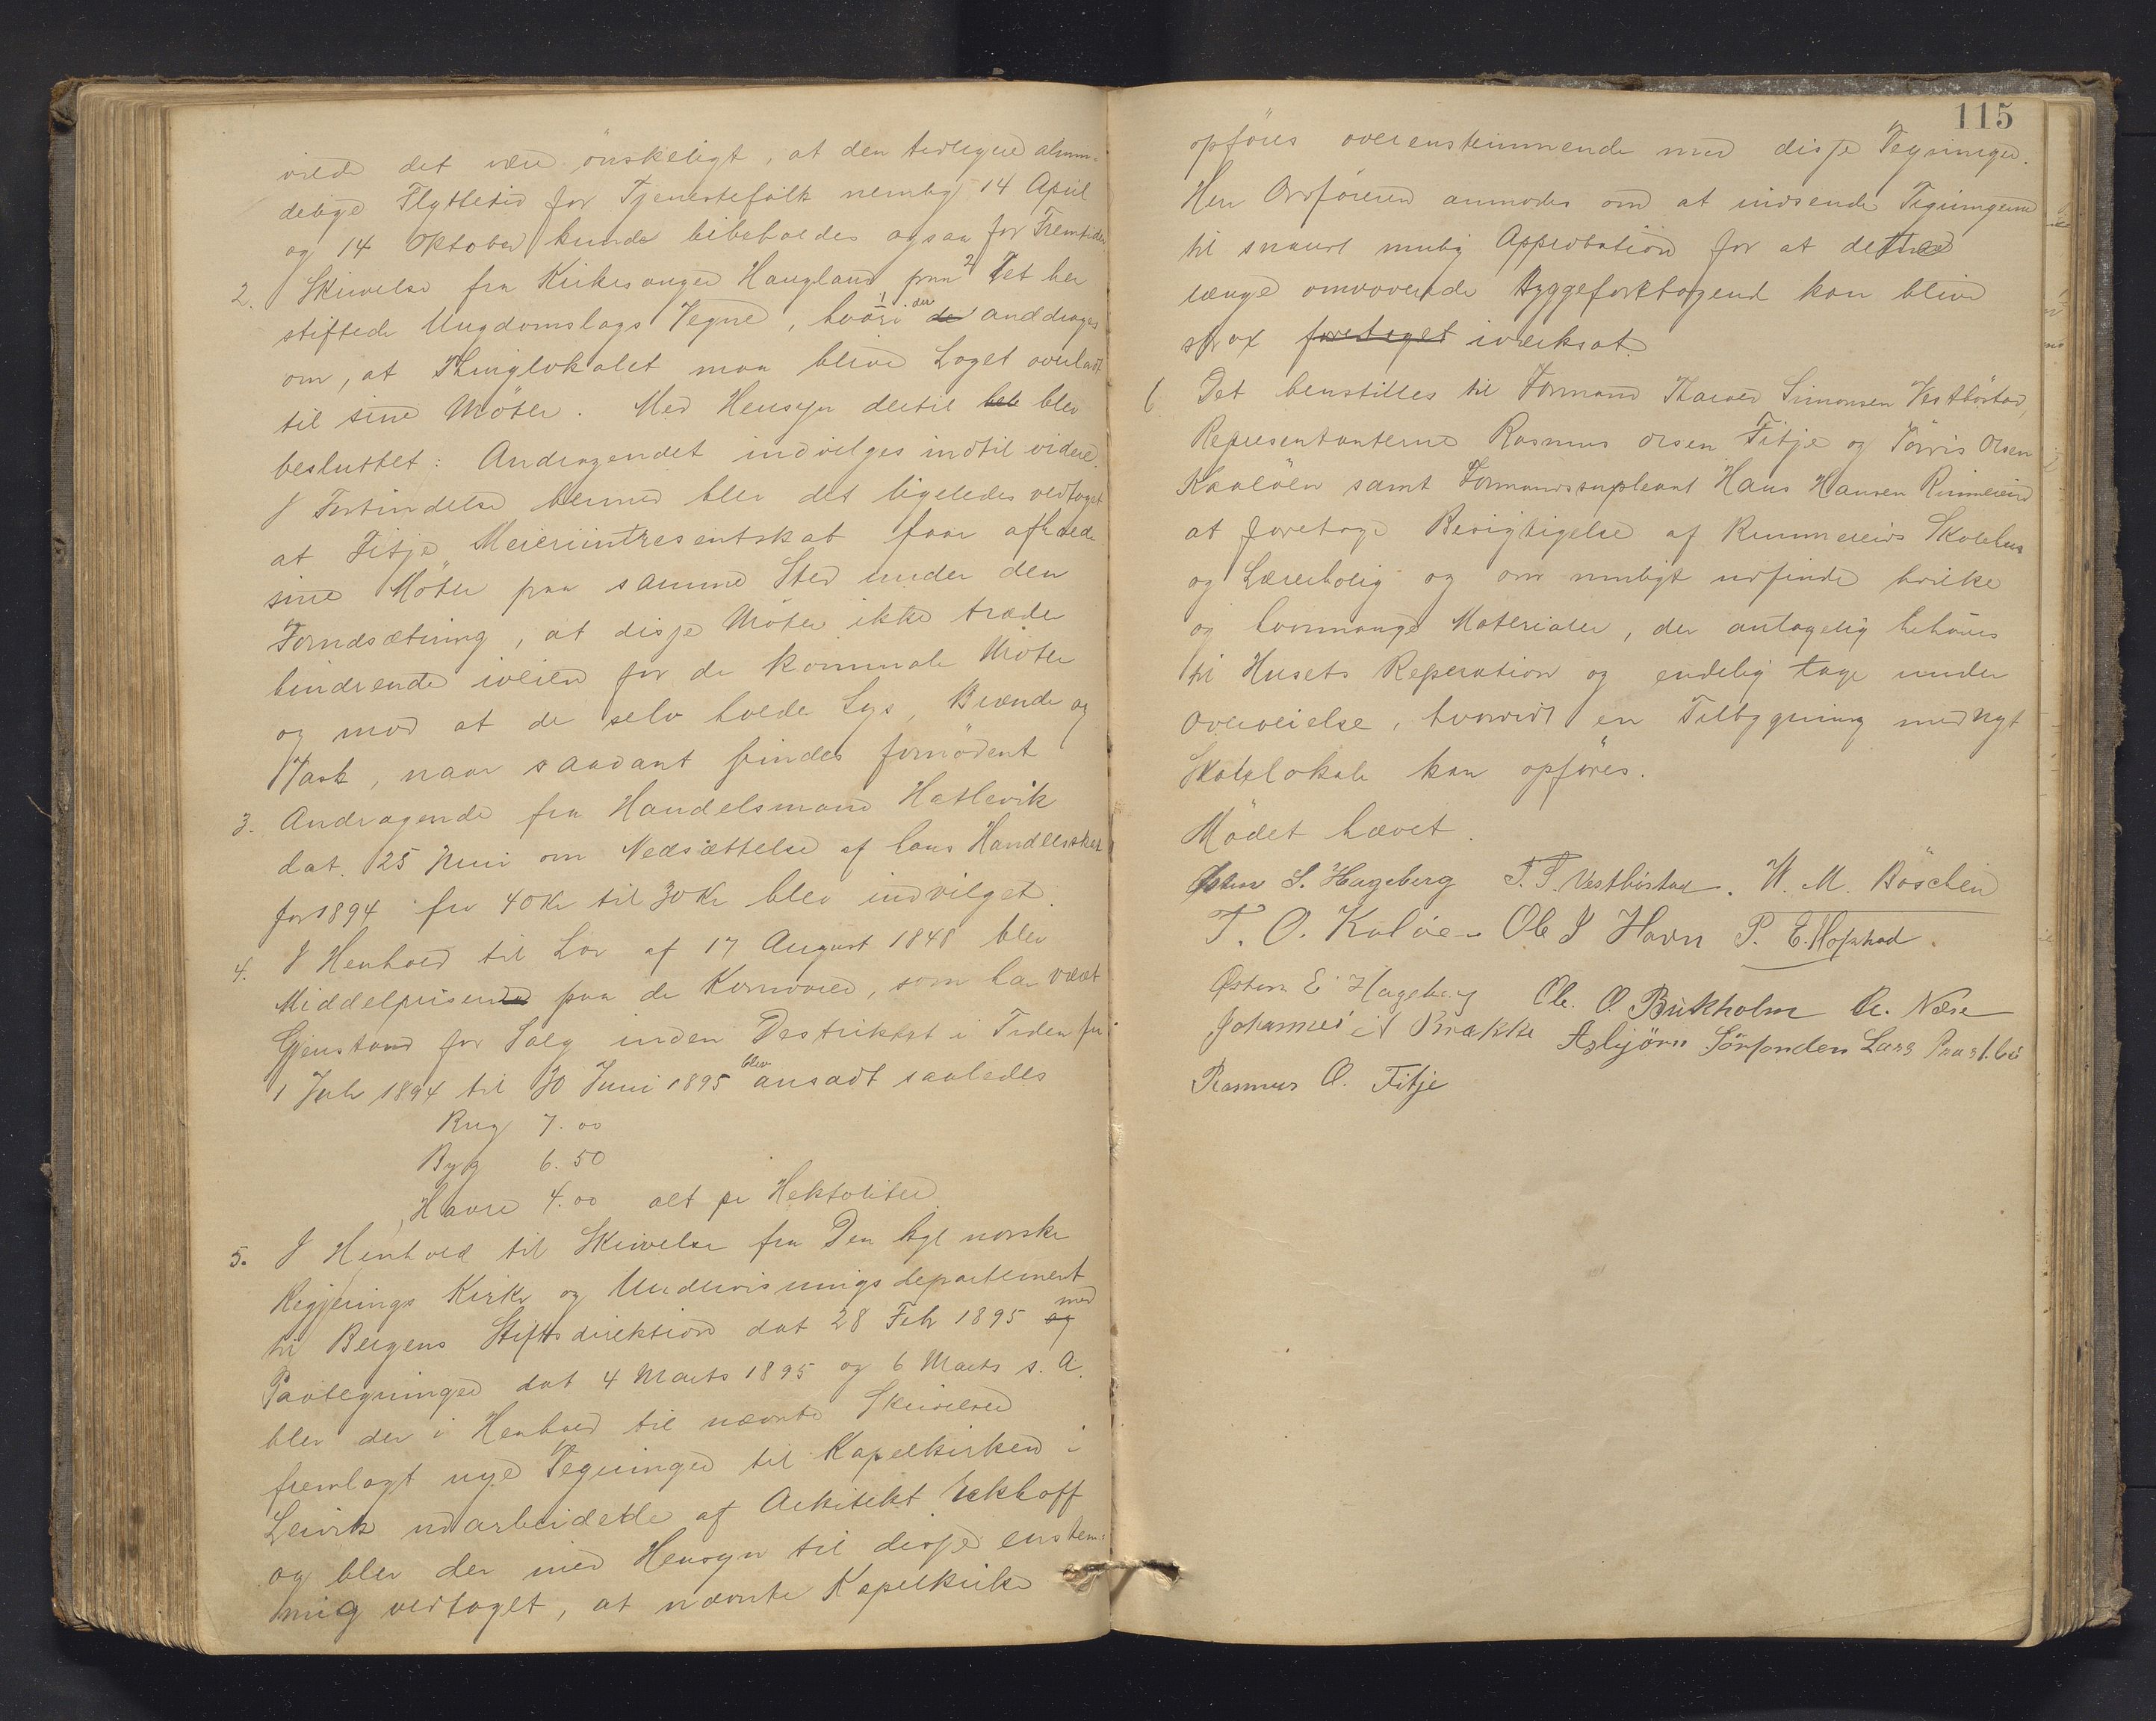 vilde det være önskeligt, at den tidligere almin-
delige Flyttetid for Tjenestefolk nemlig 14 April
og 14 Oktober kunde bibeholdes ogsaa for Fremtiden
2. Skrivelse fra Kirkesanger Haugland paa det her
stiftede Ungdomslags Vegne, hvori der andrages
om, at Thinglokalet maa blive Laget overladt
til sine Möter. Med Hensyn dertil blev
besluttet: Andragendet indvilges indtil videre.
I Forbindelse hermed blev det ligeledes vedtaget
at Fitje Meieriintresentskab faar afholde
sine Möter paa samme Sted under den
Forudsætning, at disse Möter ikke træder
hindrende iveien for de kommunale Möter
og mod at de selv holde Lys, Brænde og
Vask, naar saadant findes fornödent
3. Andragende fra Handelsmand Hatlevik
dat. 25 Mai om Nedsættelse af hans Handelsskat
for 1894 fra 40 Kr til 30 Kr blev indvilget.
4. I Henhold til Lov af 17 August 1848 blev
Middelprisen paa de Kornvarer, som har været
Gjenstand for Salg inden Destriktet i Tiden fra
1 Juli 1894 til 30 Juni 1895 blev ansadt saaledes
Rug 7.00
Byg 6.50
Havre 4.00 alt pr Hektoliter
5. I Henhold til Skrivelse fra Den kgl norske
Regjerings Kirke og Undervisningsdepartement
til Bergens Stiftsdirektion dat 28 Feb 1895 med
Paategninger dat 4 Marts 1895 og 6 Marts s. A.
blev der i Henhold til nævnte Skrivelser
fremlagt nye Tegninger til Kapelkirken i
Leirvik udarbeidede af Arkitekt Eckhoff
og blev der med Hensyn til disse enstem-
mig vedtaget, at nævnte Kapelkirke
115
opföres overensstemmende med disse Tegninger.
Herr Ordföreren anmodes om at indsende Tegningerne
til snarest mulig Approbation for at dette
længe omhandlede Byggeforetagende kan blive
strax foretaget iværksat.
6 Det henstilles til Formand Tharald Simonsen Vestböstad,
Representanterne Rasmus Olsen Fitje og Törris Olsen
Kalöen samt Formandssupleant Hans Hansen Rimmereid
at foretage Besigtigelse af Rimmereids Skolehus
og Lærerbolig og om muligt udfinde hvilke
og hvormange Materialer, der antagelig behöves
til Husets Reperation og endelig tage under
Overveielse, hvorvidt en Tilbygning med nyt
Skolelokale kan opföres.
Mödet hævet.
Östen S. Hageberg T. S. Vestböstad. W. M. Böschen
T. O. Kalöen Ole J Havn P. E. Hofstad.
Östen E Hageberg Ole O. Birkholm A. Næse
Johannes Brække Asbjörn Sörfonden Lars Prestbö
Rasmus O. Fitje